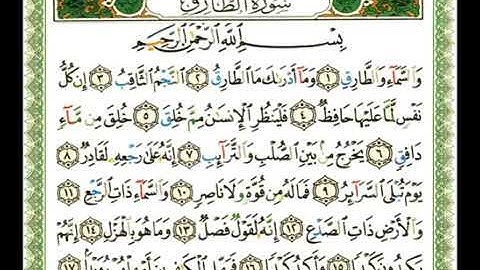 سورة الطارق
بِسْمِ اللَّهِ الرَّحْمَٰنِ الرَّحِيمِ
وَالسَّمَاءِ وَالطَّارِقِ ١ وَمَا أَدْرَاكَ مَا الطَّارِقُ ٢ النَّجْمُ الثَّاقِبُ ٣ إِن كُلُّ
نَفْسٍ لَّمَّا عَلَيْهَا حَافِظٌ ٤ فَلْيَنظُرِ الْإِنسَانُ مِمَّ خُلِقَ ٥ خُلِقَ مِن مَّاءٍ
دَافِقٍ ٦ يَخْرُجُ مِن بَيْنِ الصُّلْبِ وَالتَّرَائِبِ ٧ إِنَّهُ عَلَىٰ رَجْعِهِ لَقَادِرٌ ٨
يَوْمَ تُبْلَى السَّرَائِرُ ٩ فَمَا لَهُ مِن قُوَّةٍ وَلَا نَاصِرٍ ١٠ وَالسَّمَاءِ ذَاتِ الرَّجْعِ ١١
وَالْأَرْضِ ذَاتِ الصَّدْعِ ١٢ إِنَّهُ لَقَوْلٌ فَصْلٌ ١٣ وَمَا هُوَ بِالْهَزْلِ ١٤ إِنَّهُمْ
يَكِيدُونَ كَيْدًا ١٥ وَأَكِيدُ كَيْدًا ١٦ فَمَهِّلِ الْكَافِرِينَ أَمْهِلْهُمْ رُوَيْدًا ١٧